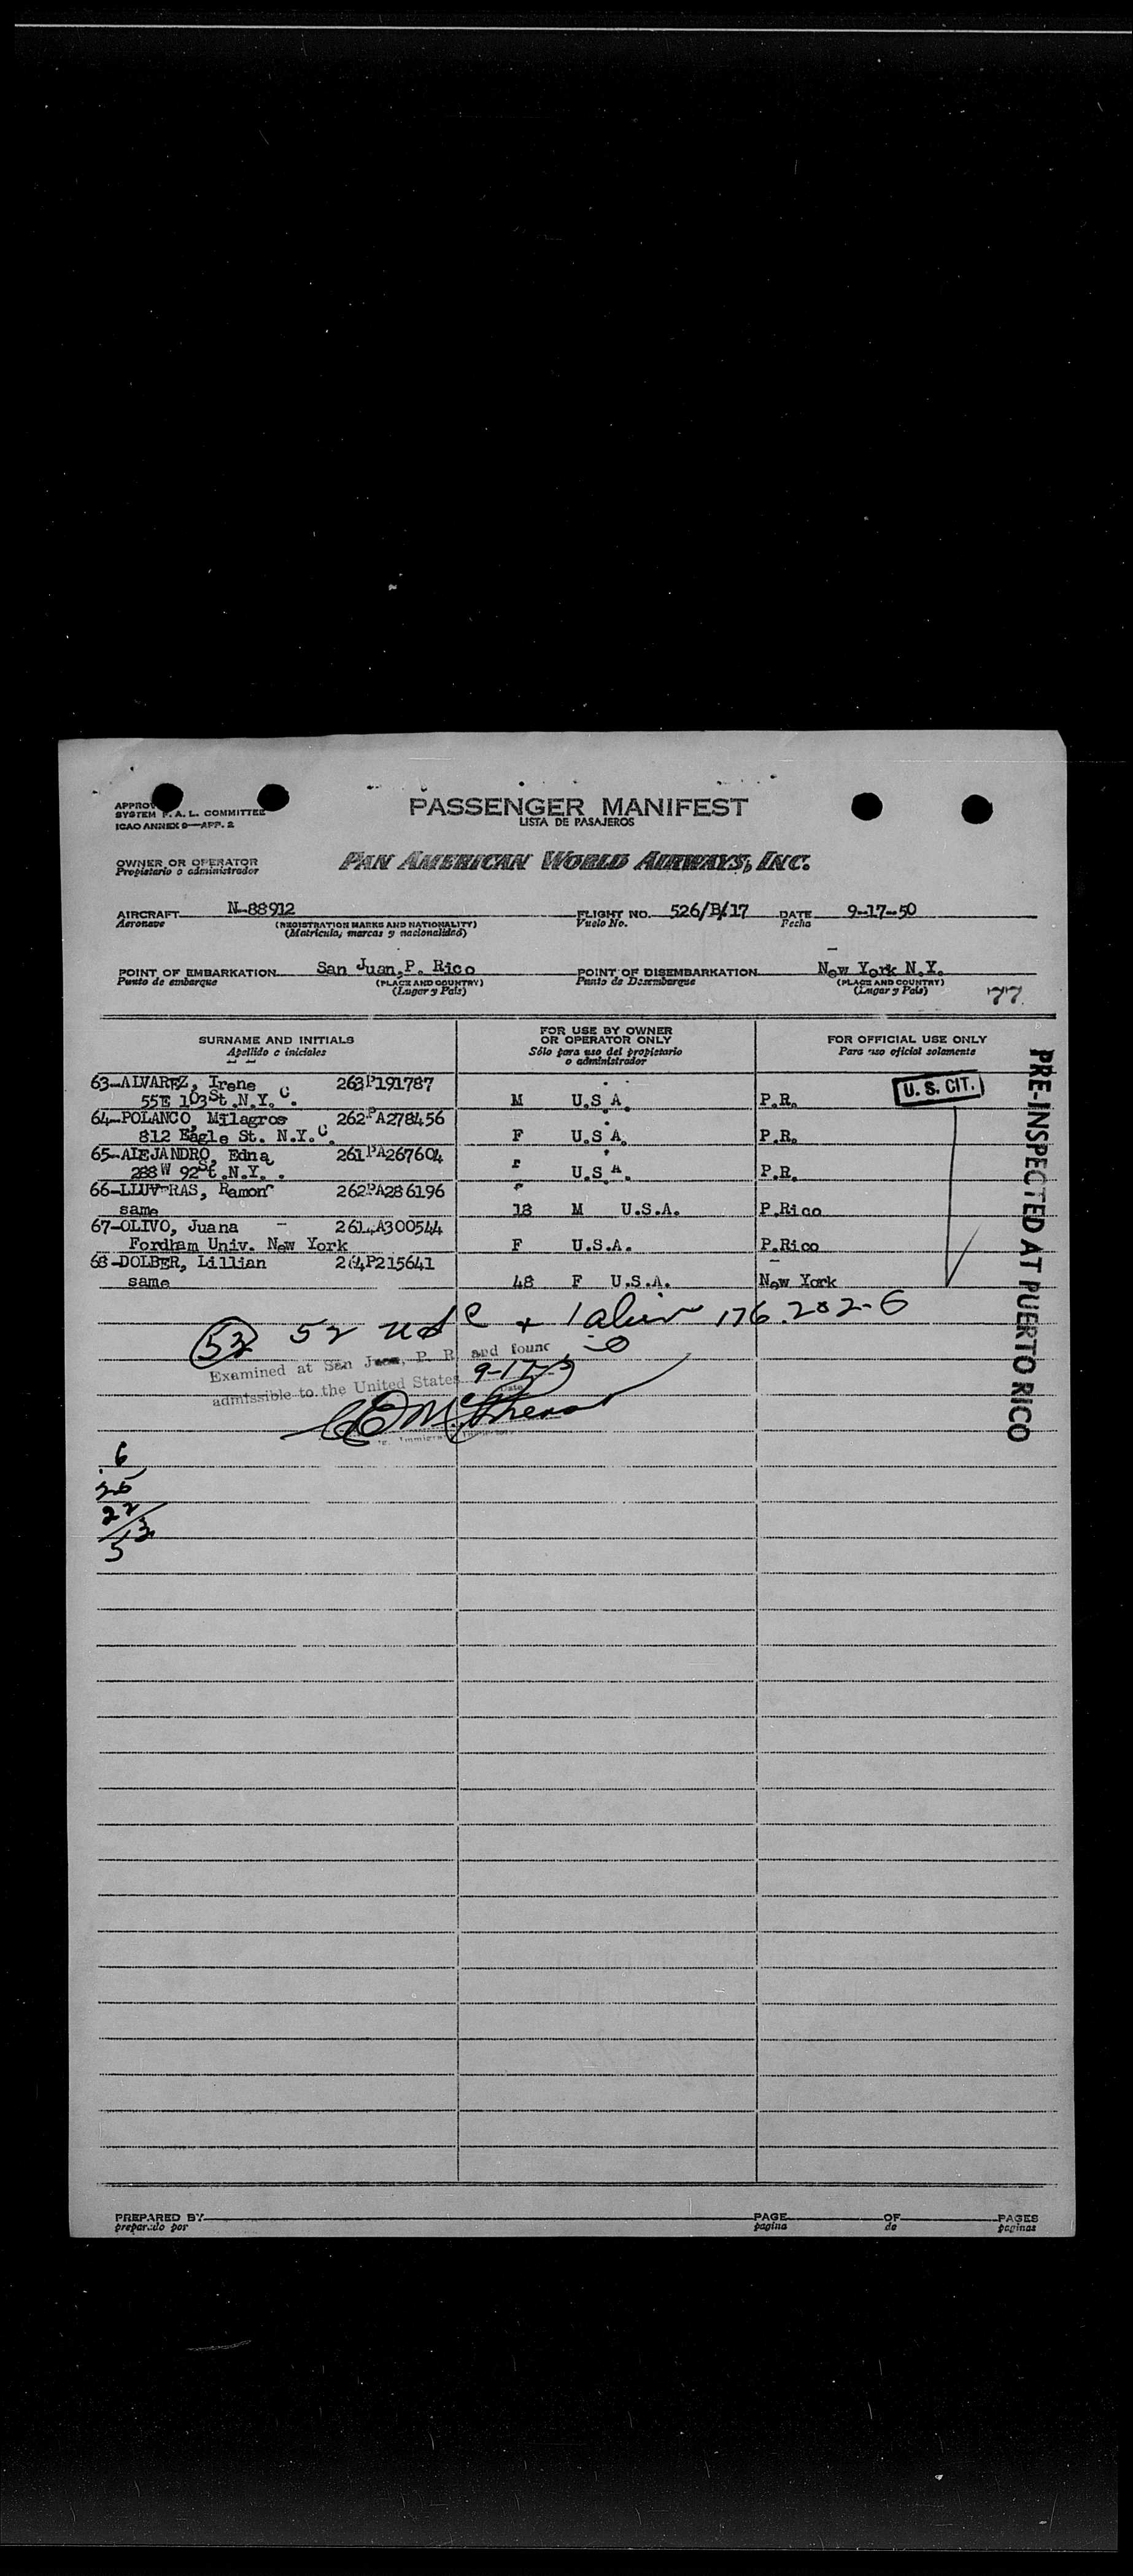 APPROV
SYSTEM F. A. L. COMMITTEE
ICAO ANNEX 9—APP. 2
PASSENGER MANIFEST
LISTA DE PASAJEROS
OWNER OR OPERATOR
Propietario o administrador
PAN AMERICAN WORLD AIRWAYS, INC.
AIRCRAFT N-88912 FLIGHT NO. 526/B/17 DATE 9-17-50
Aeronave (REGISTRATION MARKS AND NATIONALITY) Vuelo No. Fecha
(Matricula, marcas y nacionalidad)
POINT OF EMBARKATION San Juan, P. Rico POINT OF DISEMBARKATION New York N.Y.
Punto de embarque (PLACE AND COUNTRY) Punto de Desembarque (PLACE AND COUNTRY)
(Lugar y País) (Lugar y País)
77
SURNAME AND INITIALS
Apellido e iniciales
FOR USE BY OWNER
OR OPERATOR ONLY
Sólo para uso del propietario
o administrador
FOR OFFICIAL USE ONLY
Para uso oficial solamente
63-ALVAREZ, Irene 263P191787
55E 103St.N.Y.C. M U.S.A. P.R.
U. S. CIT.
64-POLANCO, Milagros 262PA278456
812 Eagle St. N.Y.C. F U.S.A. P.R.
65-ALEJANDRO, Edna 261PA267604
288W 92St.N.Y. . F U.S.A. P.R.
66-LLUVERAS, Ramon 262PA286196
same 18 M U.S.A. P.Rico
67-OLIVO, Juana 261 A300544
Fordham Univ. New York F U.S.A. P.Rico
68-DOLBER, Lillian 264P215641
same 48 F U.S.A. New York
PRE-INSPECTED AT PUERTO RICO
53 52 usc + 1 alien 176.202-6
Examined at San Juan, P. R. and found
admissible to the United States 9-17-50
Date
6
25
22
53
PREPARED BY PAGE OF PAGES
preparado por pagina de paginas